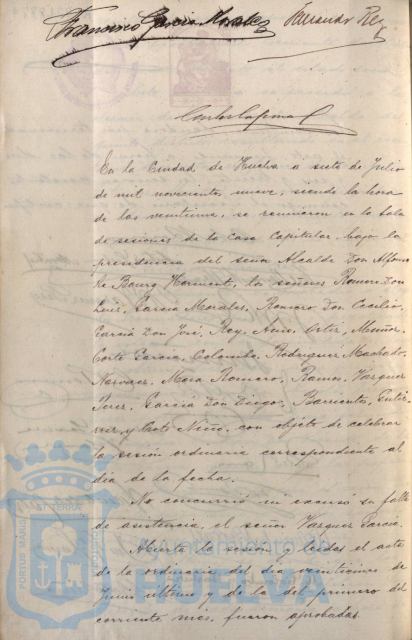 Francisco Garcia Morales Fernando Rey
En la Ciudad de Huelva á siete de Julio
de mil novecientos nueve, siendo la hora
de las veintiuna, se reunieron en la Sala
de sesiones de la Casa Capitular, bajo la
presidencia del señor Alcalde Don Alfonso
de Bourg Horment, los señores Romero Don
Luis, Garcia Morales, Romero Don Cecilio,
Garcia Don José, Rey, Ortiz, Muñoz,
Corto Garcia, Colombo, Rodriguez Machado,
Narvaez, Mora Romero, Ramos, Vazquez
Perez, Garcia Don Diego, Barrientos, Gutié-
rrez, y Coto Niño, con objeto de celebrar
la sesión ordinaria correspondiente al
dia de la fecha.
No concurrió ni excusó su falta
de asistencia, el señor Vazquez Garcia.
Abierta la sesión y leidas el acta
de la ordinaria del dia veintinueve de
Junio ultimo y de la del primero del
corriente mes, fueron aprobadas.
Ayuntamiento de
HUELVA
PORTUS MARIS
ET TERRÆ
CUSTODIA